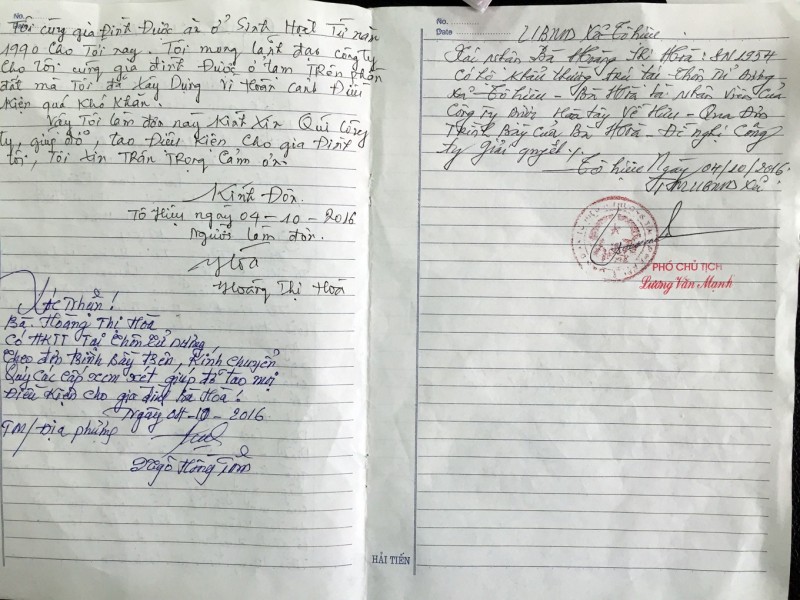 No.
Tôi cùng gia Đình Được ăn ở Sinh Hoạt Từ năm
1990 Cho Tới nay. Tôi mong lãnh đạo công Ty
Cho Tôi cùng gia đình Được ở tạm Trên phần
đất mà Tôi đã Xây Dựng Vì Hoàn cảnh Điều
Kiện quá Khó Khăn.
Vậy Tôi làm đơn này Kính Xin Quí Công
ty, giúp đỡ, tạo Điều Kiện Cho gia Đình
tôi, Tôi Xin Trân Trọng Cảm ơn.
Kính Đơn.
Tô Hiệu ngày 04-10-2016
Người làm đơn.
Hoà
Hoàng Thị Hoà
Xác Nhận!
Bà. Hoàng Thị Hoà
Có HKTT Tại Thôn Tử Dương
Theo đơn Trình Bầy Bên, Kính Chuyển
Quý Các cấp xem xét giúp đỡ tạo mọi
Điều Kiện cho gia đình bà Hoà!
Ngày 04-10-2016
TM/Địa phương
Ngô Hồng
HẢI TIẾN
No.
Date
UBND Xã Tô hiệu
Xác nhận Bà Hoàng Thị Hoà: SN 1954
có hộ khẩu thường trú tại thôn Tử Dương
xã Tô hiệu - Bà Hoà là nhân viên của
Công ty Về Hưu - Qua Đơn
Trình Bày của Bà Hoà - Đề nghị Công
ty giải quyết./.
Tô hiệu Ngày 04/10/2016
TM UBND Xã
PHÓ CHỦ TỊCH
Lương Văn Mạnh